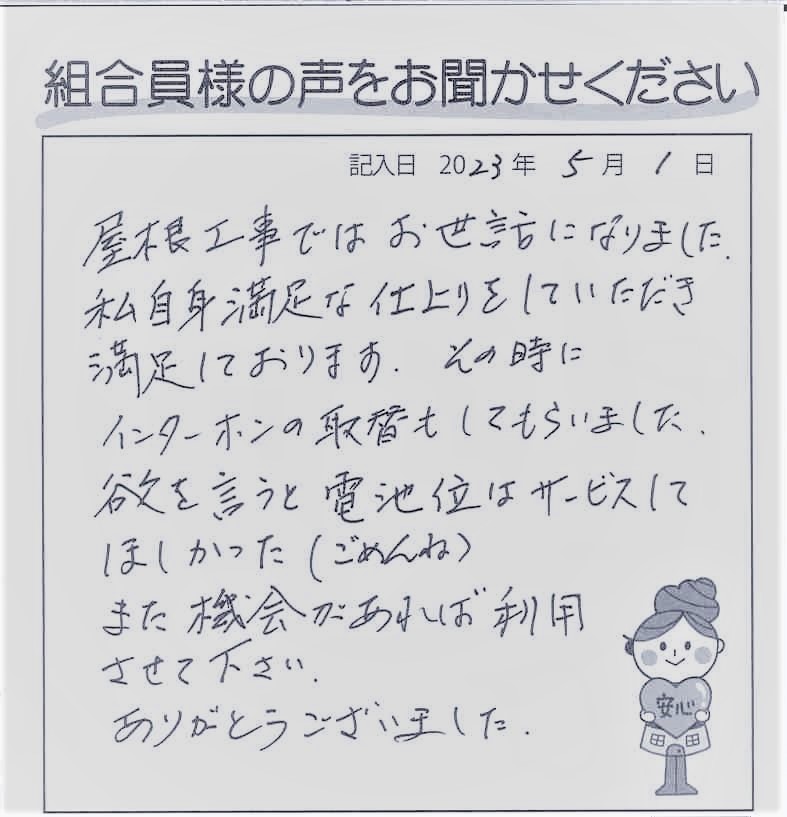 組合員様の声をお聞かせください
記入日 2023年 5月 1日
屋根工事では お世話になりました.
私自身満足な仕上りをしていただき
満足しております. その時に
インターホンの取替もしてもらいました.
欲を言うと電池位はサービスして
ほしかった(ごめんね)
また機会があれば利用
させて下さい.
ありがとうございました.
安心